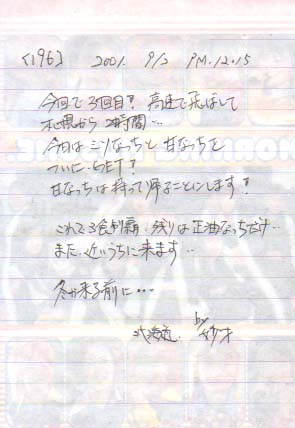 <196> 2001 9/2 PM.12.15
今回で3回目！高速で飛ばして
札幌から 2時間…
今日は ミソなっちと 甘なっちを
ついに GET！
甘なっちは 持って帰ることにします！
これで3食制覇 残りは正油なっちだけ…
また、近いうちに来ます…
冬が来る前に・・・
北海道. by
MORNING